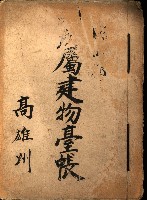 屬建物臺帳
高雄州